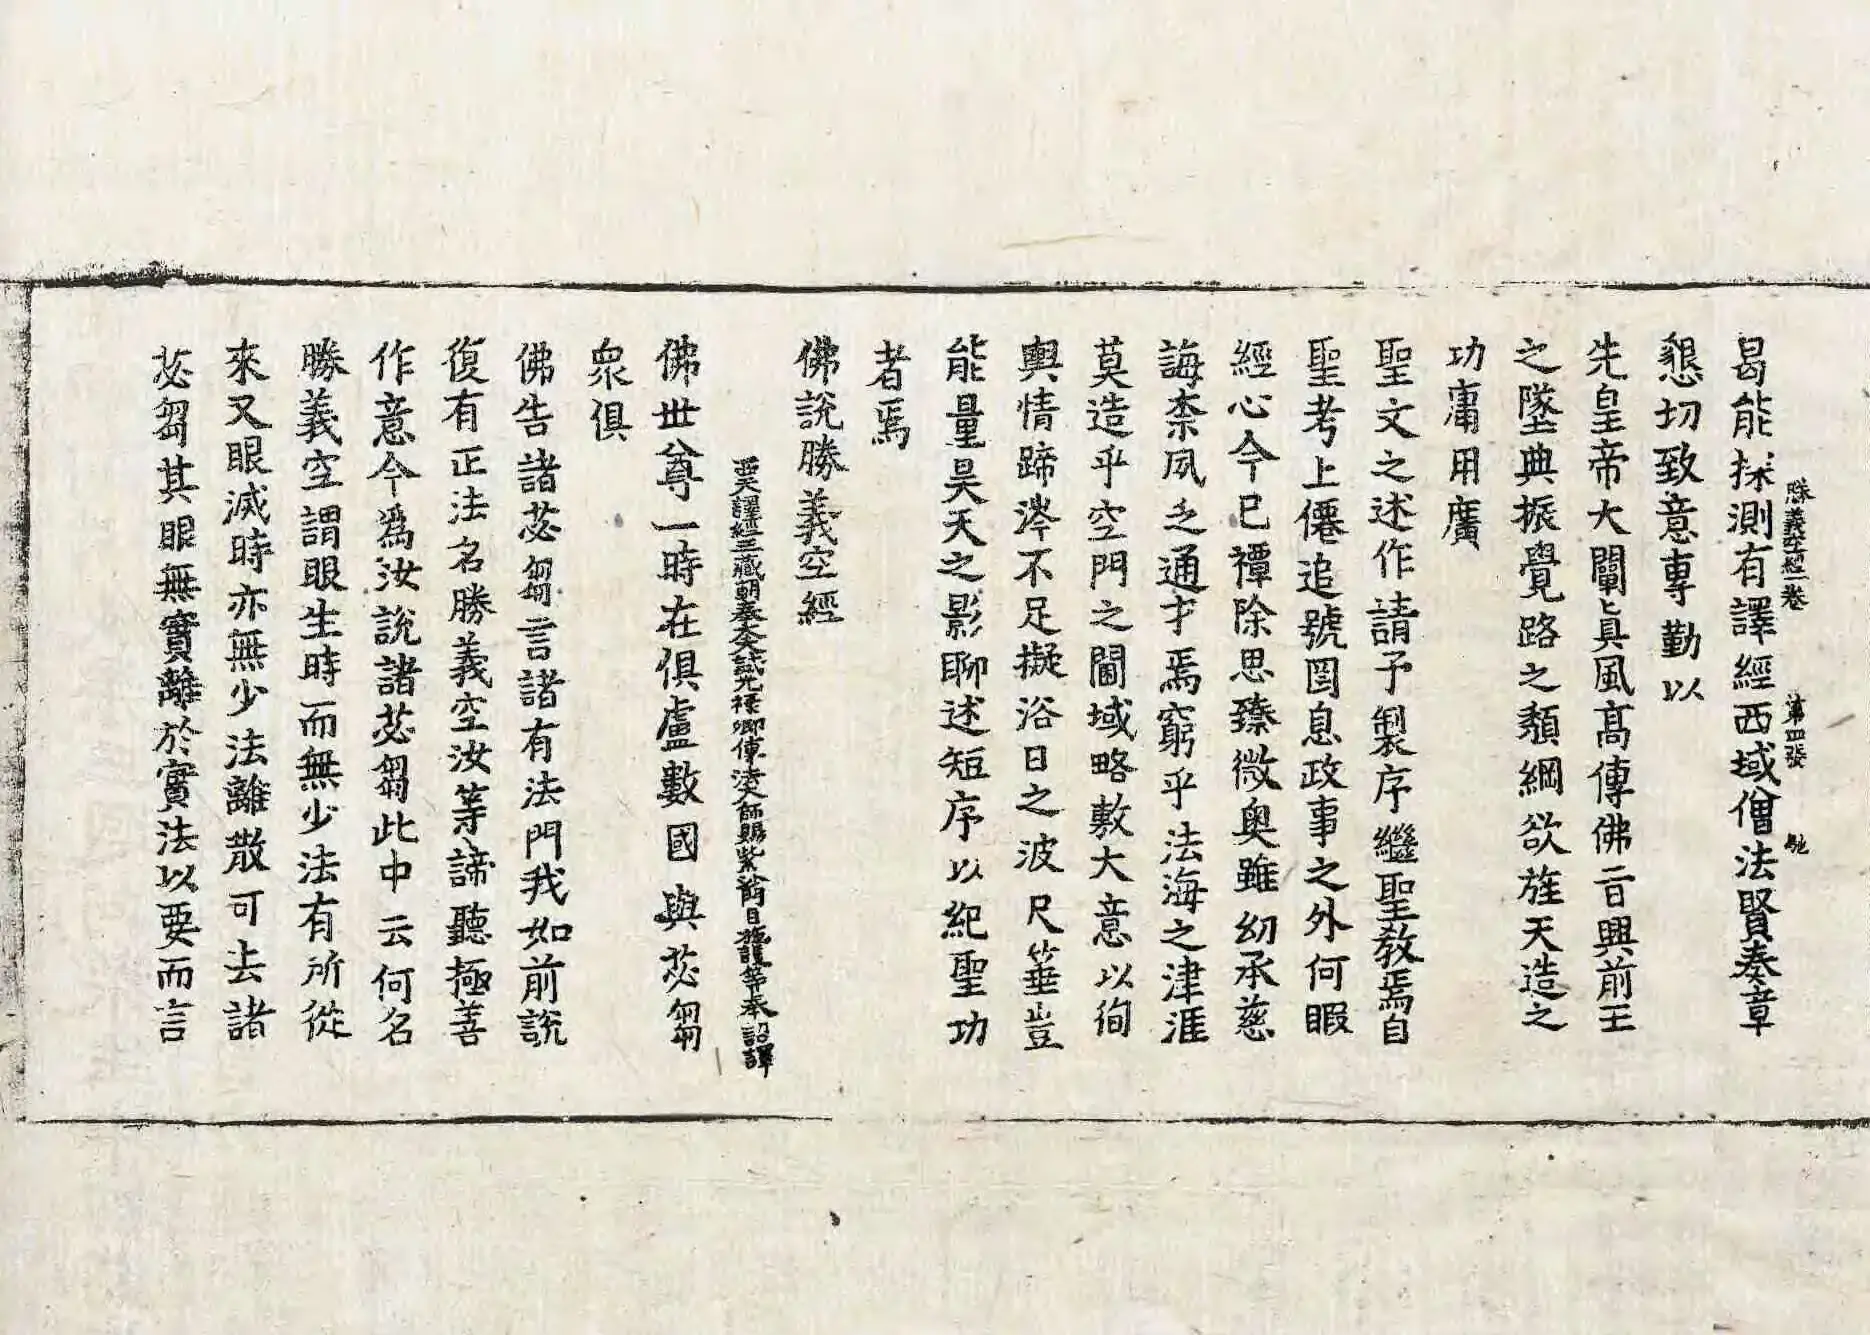 勝義空經一卷 第四張 馳
曷能探測有譯經西域僧法賢奏章
懇切致意專勤以
先皇帝大闡眞風高傳佛旨興前王
之墜典振覺路之頹綱欲旌天造之
功庸用廣
聖文之述作請予製序繼聖教焉自
聖考上僊追號罔息政事之外何暇
經心今已禫除思臻微奧雖幼承慈
誨柰夙乏通才焉窮乎法海之津涯
莫造乎空門之閫域略敷大意以徇
輿情蹄涔不足擬浴日之波尺箠豈
能量昊天之影聊述短序以紀聖功
者焉
佛說勝義空經
西天譯經三藏朝奉大夫試光祿卿傳法大師賜紫臣施護等奉 詔譯
佛世尊一時在俱盧數國與苾芻
眾俱
佛告諸苾芻言諸有法門我如前說
復有正法名勝義空汝等諦聽極善
作意今爲汝說諸苾芻此中云何名
勝義空謂眼生時而無少法有所從
來又眼滅時亦無少法離散可去諸
苾芻其眼無實離於實法以要而言